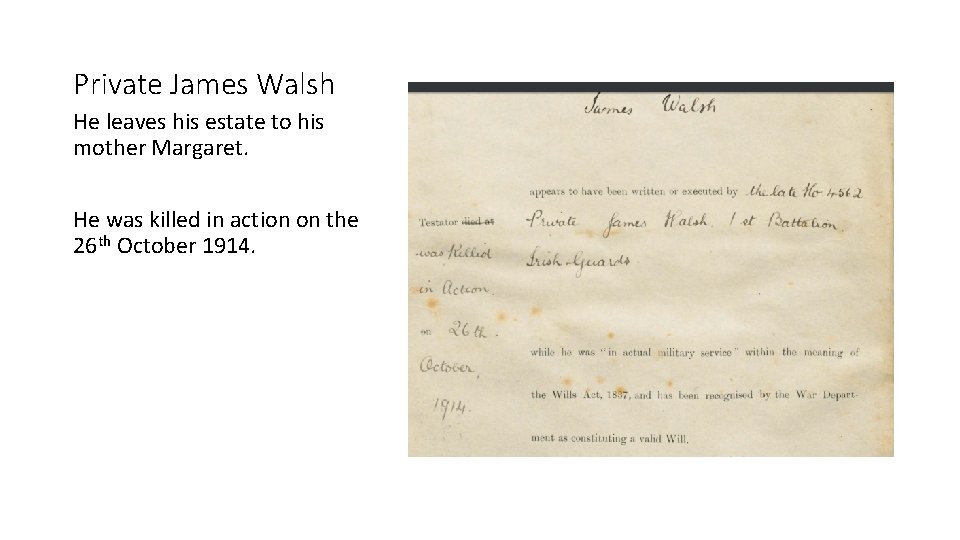 Private James Walsh
He leaves his estate to his
mother Margaret.
He was killed in action on the
26th October 1914.
James Walsh
appears to have been written or executed by the late No 4562
Testator died at
Private James Walsh, 1st Battalion
was Killed
Irish Guards
in Action.
on 26th.
while he was "in actual military service" within the meaning of
October,
the Wills Act, 1837, and has been recognised by the War Depart-
1914.
ment as constituting a valid Will.